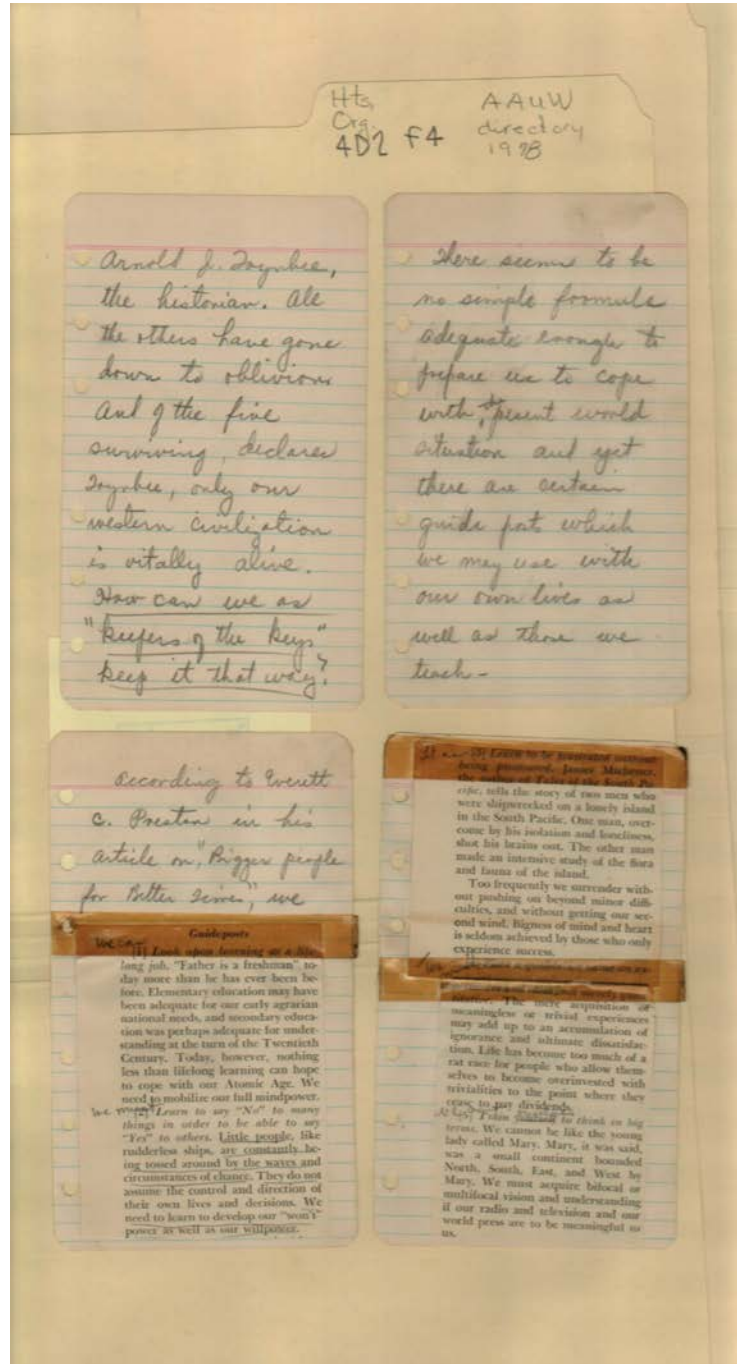 Hts, AAUW
Org. directory
4D2 F4 1978
Arnold J. Toynbee,
the historian. All
the others have gone
down to oblivion
and of the five
surviving, declares
Toynbee, only our
western civilization
is vitally alive.
How can we as
"keepers of the keys"
keep it that way?
There seems to be
no simple formula
adequate enough to
prepare us to cope
with the present world
situation and yet
there are certain
guide posts which
we may use with
our own lives as
well as those we
teach -
According to Everett
C. Preston in his
article on, "Bigger people
for Better Times", we
Guideposts
we can
(1) Look upon learning as a life-
long job. "Father is a freshman" to-
day more than he has ever been be-
fore. Elementary education may have
been adequate for our early agrarian
national needs, and secondary educa-
tion was perhaps adequate for under-
standing at the turn of the Twentieth
Century. Today, however, nothing
less than lifelong learning can hope
to cope with our Atomic Age. We
need to mobilize our full mindpower.
we must (2) Learn to say "No" to many
things in order to be able to say
"Yes" to others. Little people, like
rudderless ships, are constantly be-
ing tossed around by the waves and
circumstances of chance. They do not
assume the control and direction of
their own lives and decisions. We
need to learn to develop our "won't"
power as well as our willpower.
(3) Learn to be frustrated without
being paralyzed. James Michener,
the author of Tales of the South Pa-
cific, tells the story of two men who
were shipwrecked on a lonely island
in the South Pacific. One man, over-
come by his isolation and loneliness,
shot his brains out. The other man
made an intensive study of the flora
and fauna of the island.
Too frequently we surrender with-
out pushing on beyond minor diffi-
culties, and without getting our sec-
ond wind. Bigness of mind and heart
is seldom achieved by those who only
experience success.
The mere acquisition of
meaningless or trivial experiences
may add up to an accumulation of
ignorance and ultimate dissatisfac-
tion. Life has become too much of a
rat race for people who allow them-
selves to become overinvested with
trivialities to the point where they
cease to pay dividends.
to think in big
terms. We cannot be like the young
lady called Mary. Mary, it was said,
was a small continent bounded
North, South, East, and West by
Mary. We must acquire bifocal or
multifocal vision and understanding
if our radio and television and our
world press are to be meaningful to
us.